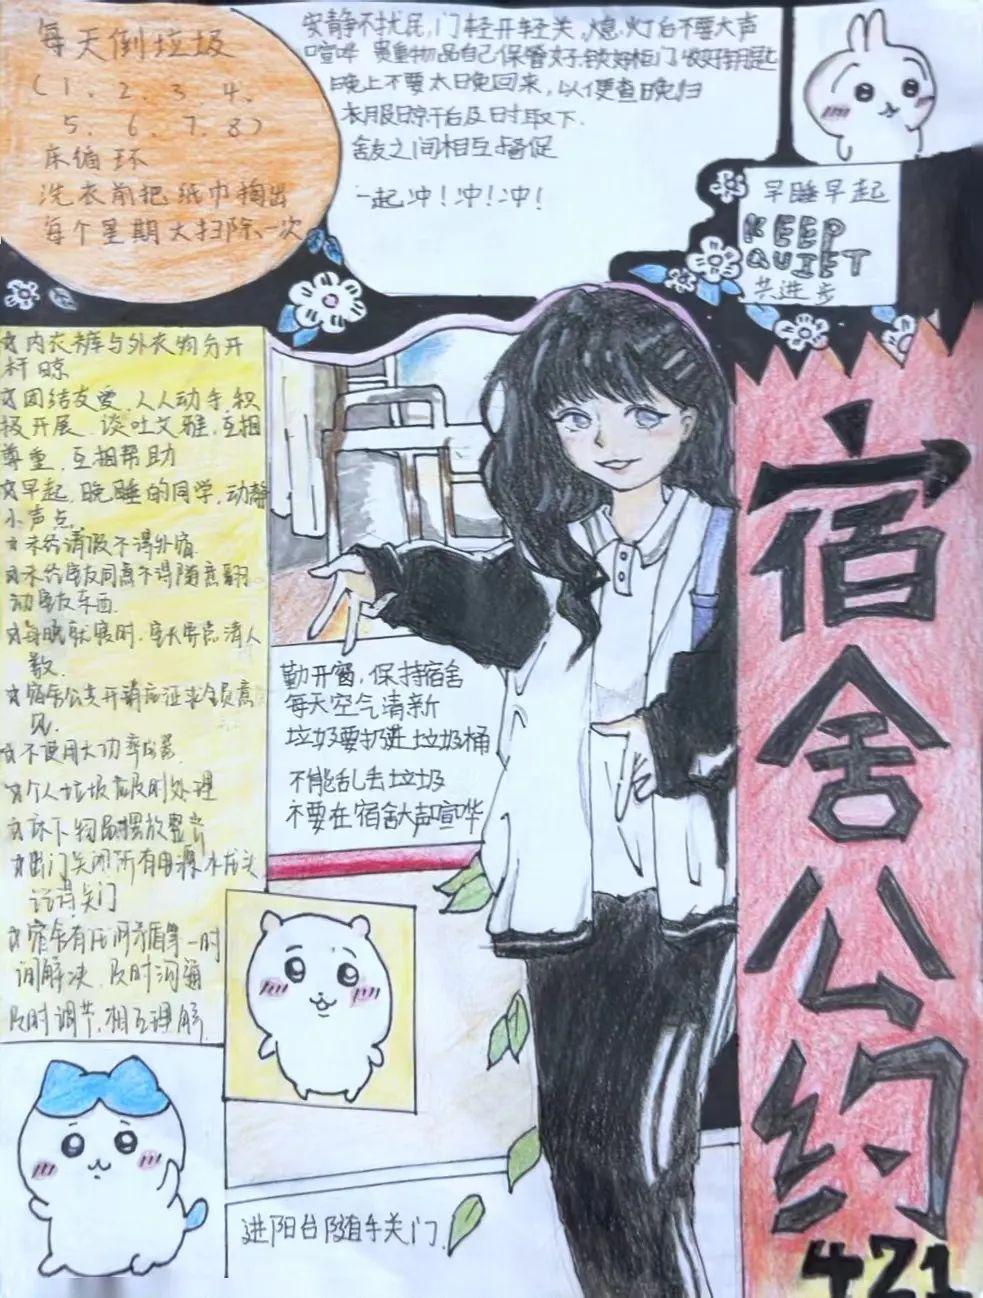 每天倒垃圾
(1、2、3、4、
5、6、7、8)
床循环
洗衣前把纸巾掏出
每个星期大扫除一次
安静不扰民,门轻开轻关,熄灯后不要大声
喧哗 贵重物品自己保管好,锁好柜门,收好钥匙
晚上不要太晚回来,以便查晚归
衣服晾干后及时取下.
舍友之间相互督促
一起冲!冲!冲!
早睡早起
KEEP
QUIET
共进步
宿舍公约
421
☆内衣裤与外衣物分开
杆晾
☆团结友爱,人人动手,积
极开展.谈吐文雅,互相
尊重.互相帮助
☆早起,晚睡的同学,动静
小声点.
☆未经请假不得外宿.
☆未经室友同意不得随意翻
动室友东西.
☆每晚就寝时.室长要点清人
数.
☆宿舍公共开销应征求全员意
见.
☆不使用大功率电器.
☆个人垃圾应及时处理
☆床下物品摆放整齐
☆出门关闭所有电源.水龙头
请关门
☆宿舍有任何矛盾第一时
间解决.及时沟通
及时调节,相互理解.
勤开窗,保持宿舍
每天空气清新
垃圾要扔进垃圾桶
不能乱丢垃圾
不要在宿舍大声喧哗
进阳台随手关门.